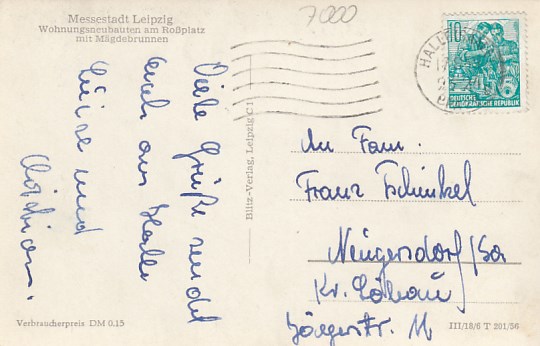 Messestadt Leipzig
Wohnungsneubauten am Roßplatz
mit Mägdebrunnen
7000
Viele Grüße sendet
Euch aus Halle
Luise und
Verbraucherpreis DM 0.15
Blitz-Verlag, Leipzig C 1
HALLE
10
DEUTSCHE
DEMOKRATISCHE REPUBLIK
An Fam.
Franz Tschinkel
Neugersdorf/Sa
Kr. Löbau
Jägerstr. 11
III/18/6 T 201/56